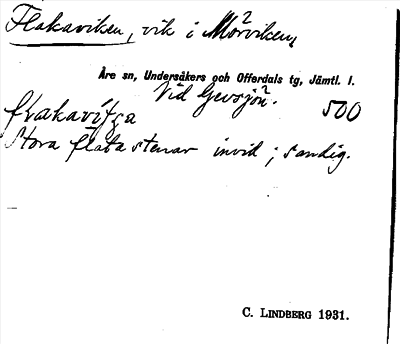 Flakaviken, vik i Morviken,
Åre sn, Undersåkers och Offerdals tg, Jämtl. l.
Vid Gevsjön. 500
flakavitja
Stora flata stenar invid; sandig.
C. LINDBERG 1931.